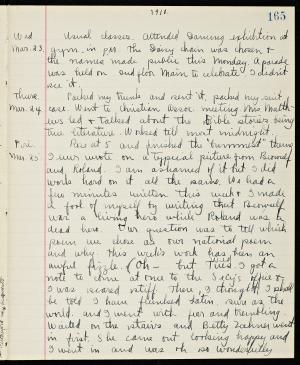 1910.
165
Wed Usual classes. Attended Dancing exhibition at
Mar. 23. gym. in pm. The Daisy chain was chosen &
the names made public this Monday. A parade
was held on 2nd floor Main to celebrate. I didn't
see it.
Thurs. Packed my trunk and sent it, packed my suit
Mar. 24 case. Went to Christian Assoc meeting. Miss
led & talked about the Bible stories being
true literature. Worked till most midnight.
Fri. Rose at 5 and finished the
Mar. 25 I ever wrote on a typical picture from Beowulf
and Roland. I am ashamed of it but I did
work hard on it all the same. We had a
few minutes written this week & I made
a fool of myself by writing that Beowulf
was a living hero which Roland was a
dead hero. Our question was to tell which
poem we chose as our national poem
and why. This week's work has been an
awful fizzle. (Oh - but Tues I got a
note to come at one to the Lady P's office &
I was scared stiff. There, I thought, I shall
be told I have flunked Latin, sure as the
world. and I went with fear and trembling.
Waited on the stairs and Betty Zahner went
in first. She came out looking happy and
I went in and was oh so wonderfully